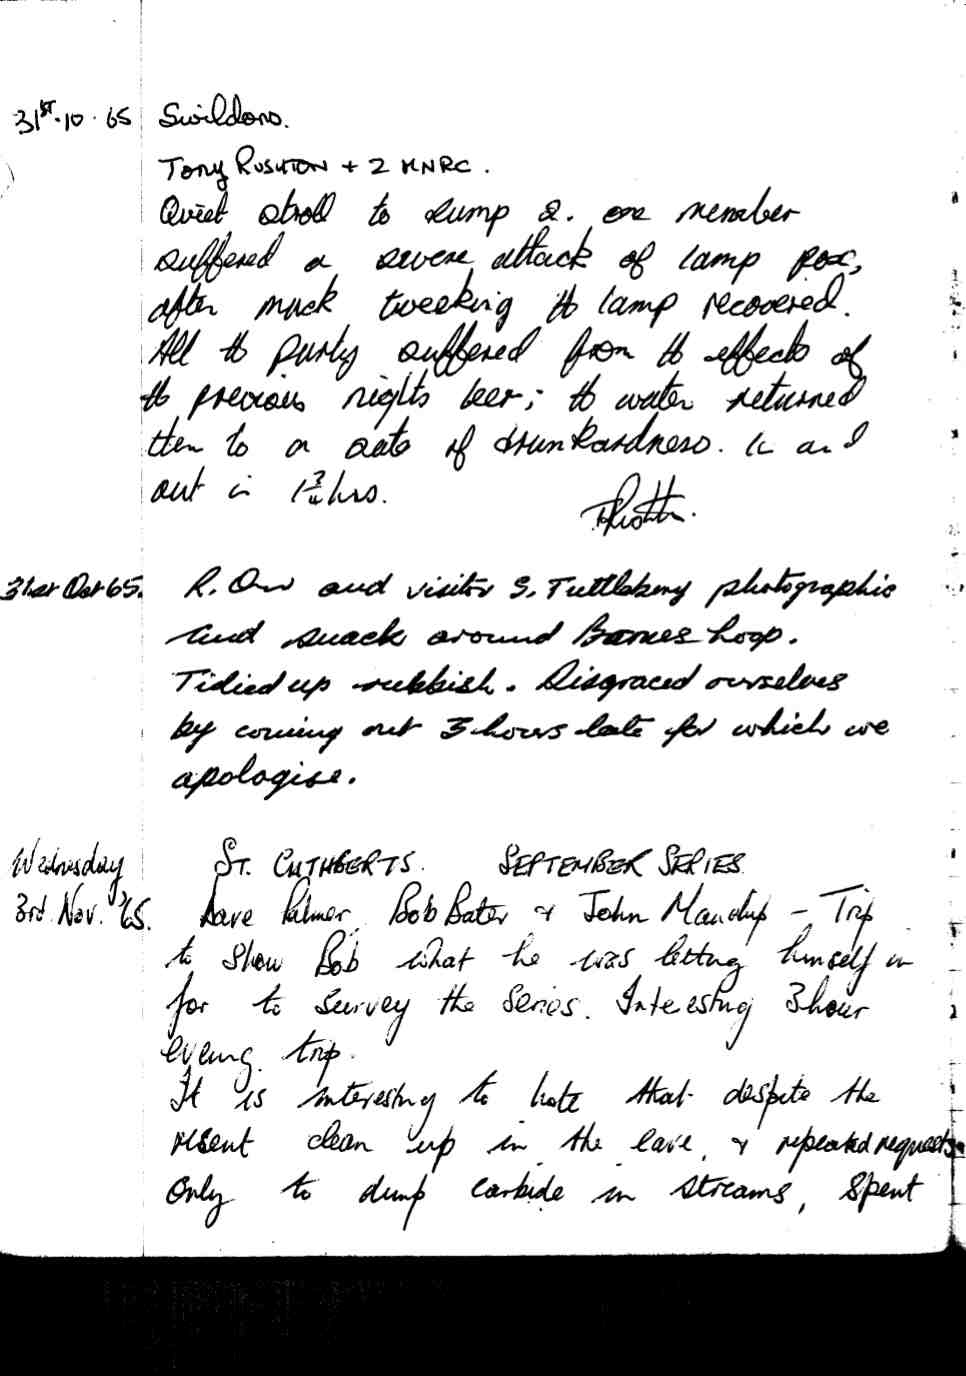 31ST.10.65 Swildons.
Tony RUSHTON + 2 MNRC.
Quiet stroll to sump 2. one member
suffered a severe attack of lamp pox,
after much tweeking tt lamp recovered.
All tt party suffered from tt effects of
tt previous nights beer; tt water returned
them to a state of drunkardness. In and
out in 1¾ hrs.
31st Oct 65. R. Orr and visitor S. Tuttlebury photographic
and snack around Barnes Loop.
Tidied up rubbish. Disgraced ourselves
by coming out 3 hours late for which we
apologise.
Wednesday ST. CUTHBERTS. SEPTEMBER SERIES.
3rd. Nov. '65. Dave Palmer, Bob Bater & John Manchip - Trip
to Show Bob what he was letting himself in
for to survey the series. Interesting 3 hour
evening trip.
It is interesting to note that despite the
resent clean up in the cave, & repeated requests
only to dump carbide in streams, spent